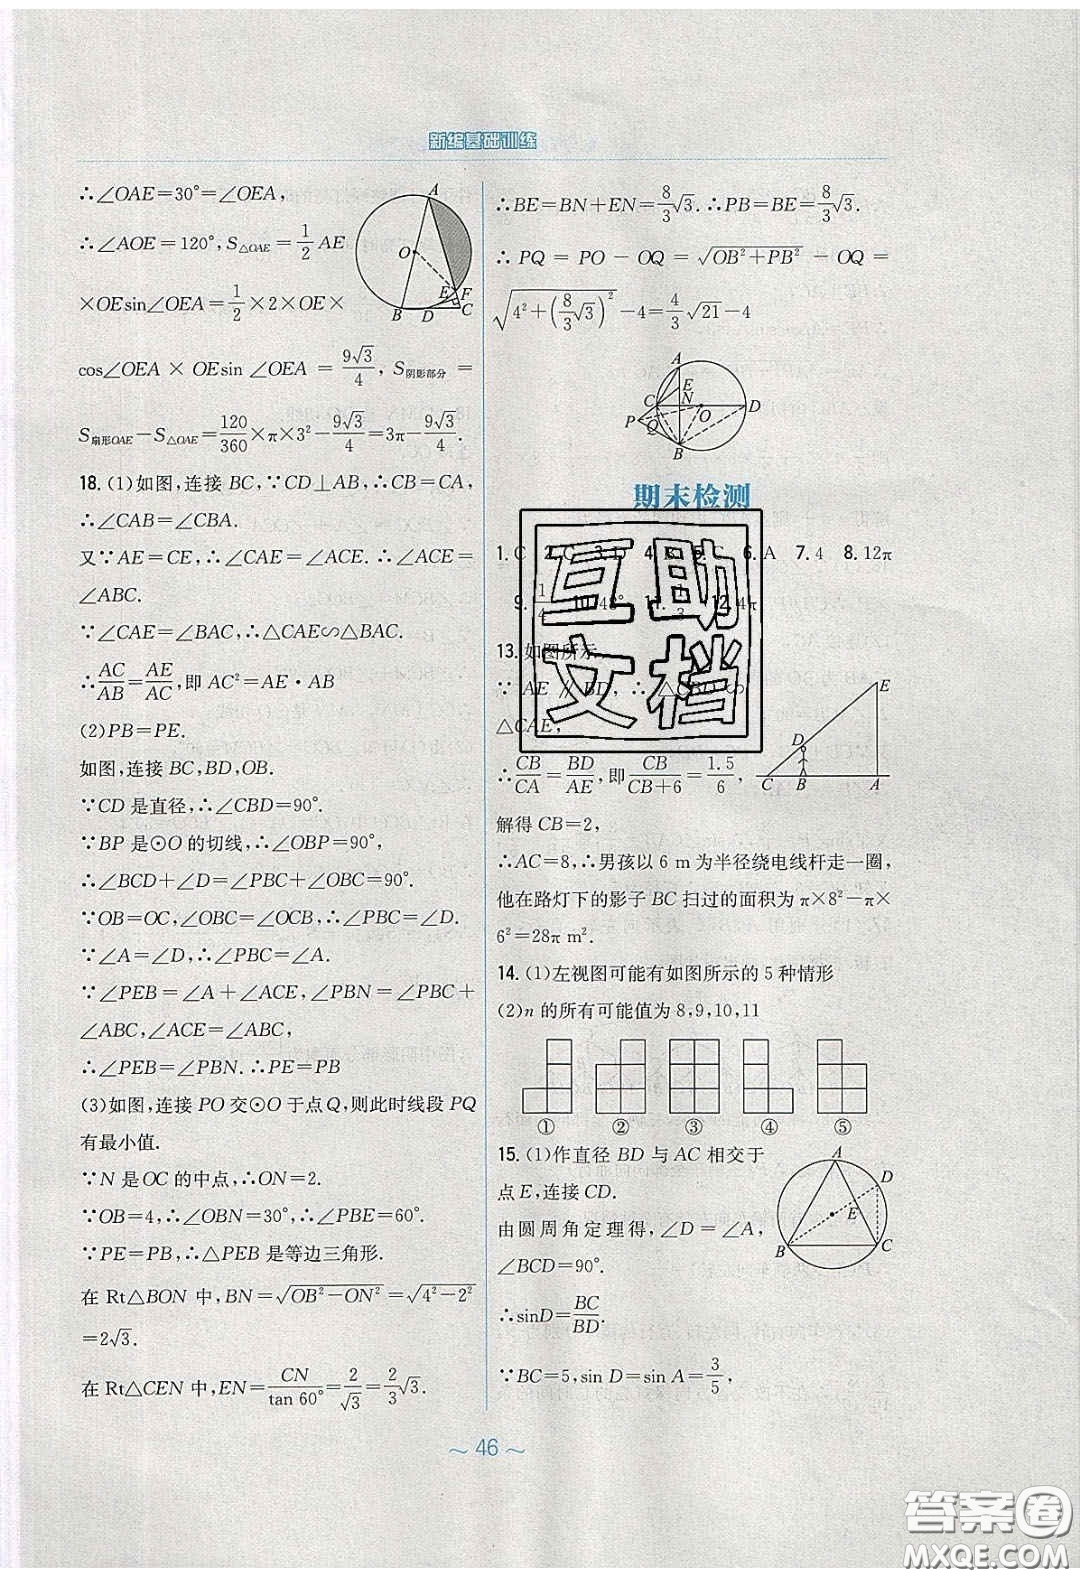 新编基础训练
∴∠OAE=30°=∠OEA,
∴∠AOE=120°,S△OAE=1/2 AE
×OEsin∠OEA=1/2×2×OE×
cos∠OEA×OEsin∠OEA=9√3/4,S阴影部分=
S扇形OAE-S△OAE=120/360×π×3²-9√3/4=3π-9√3/4.
18.(1)如图,连接BC,∵CD⊥AB,∴CB=CA,
∴∠CAB=∠CBA.
又∵AE=CE,∴∠CAE=∠ACE.∴∠ACE=
∠ABC.
∵∠CAE=∠BAC,∴△CAE∽△BAC.
∴AC/AB=AE/AC,即AC²=AE·AB
(2)PB=PE.
如图,连接BC,BD,OB.
∵CD是直径,∴∠CBD=90°.
∵BP是⊙O的切线,∴∠OBP=90°.
∴∠BCD+∠D=∠PBC+∠OBC=90°.
∵OB=OC,∠OBC=∠OCB,∴∠PBC=∠D.
∵∠A=∠D,∴∠PBC=∠A.
∵∠PEB=∠A+∠ACE,∠PBN=∠PBC+
∠ABC,∠ACE=∠ABC,
∴∠PEB=∠PBN.∴PE=PB
(3)如图,连接PO交⊙O于点Q,则此时线段PQ
有最小值.
∵N是OC的中点,∴ON=2.
∵OB=4,∴∠OBN=30°,∴∠PBE=60°.
∵PE=PB,∴△PEB是等边三角形.
在Rt△BON中,BN=√(OB²-ON²)=√(4²-2²)
=2√3.
在Rt△CEN中,EN=CN/tan 60°=2/√3=2/3√3.
A
O
E
F
B
D
C
∴BE=BN+EN=8/3√3.∴PB=BE=8/3√3.
∴PQ=PO-OQ=√(OB²+PB²)-OQ=
√(4²+(8/3√3)²)-4=4/3√21-4
A
E
C
N
O
D
P
Q
B
期末检测
1.C 2.C 6.A 7.4 8.12π
9.1/4 10.48° 12.4π
13.如图所示,
∵AE∥BD,∴△CBD∽
△CAE,
∴CB/CA=BD/AE,即CB/(CB+6)=1.5/6,
E
D
C
B
A
解得CB=2,
∴AC=8,∴男孩以6 m为半径绕电线杆走一圈,
他在路灯下的影子BC扫过的面积为π×8²-π×
6²=28π m².
14.(1)左视图可能有如图所示的5种情形
(2)n的所有可能值为8,9,10,11
① ② ③ ④ ⑤
15.(1)作直径BD与AC相交于
点E,连接CD.
由圆周角定理得,∠D=∠A,
∠BCD=90°.
∴sinD=BC/BD.
∵BC=5,sin D=sin A=3/5,
A
D
E
B
C
互助
文档
~46~
答案卷
MXQE.COM